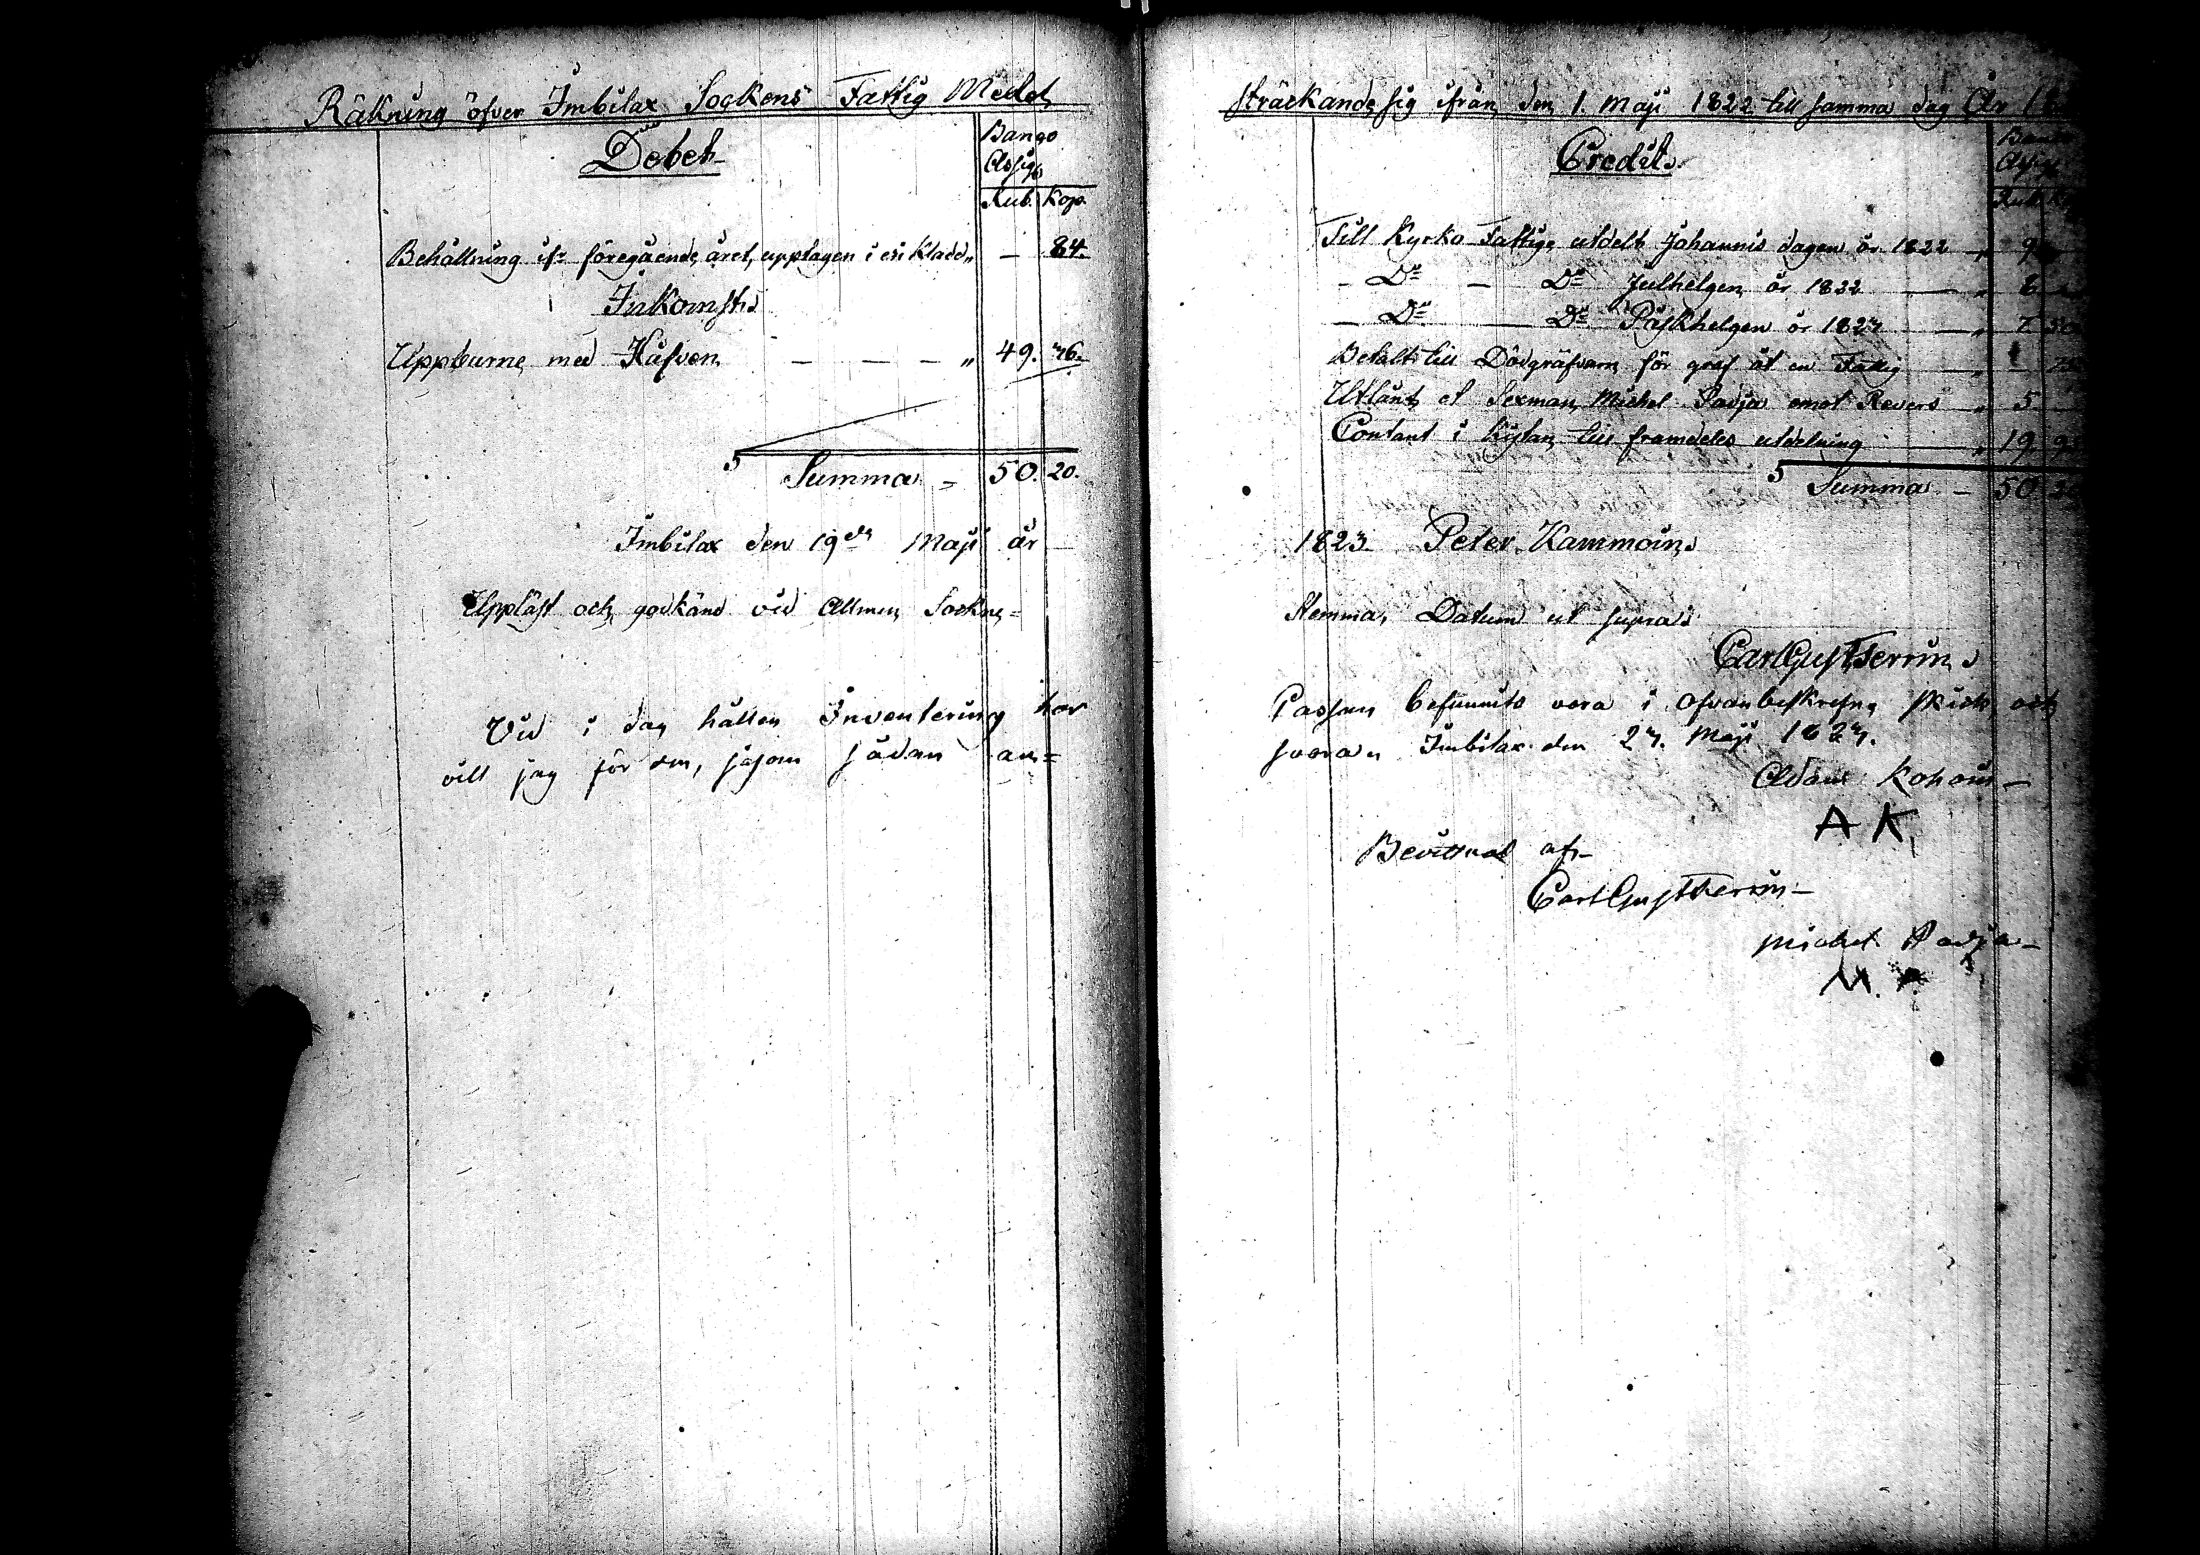 Räkning öfver Imbilax Sockens Fattig Medel
Debet
Banco
Assig
Rub. Kop.
Behållning ifr föregående året, upptagen i Kladd „ — 84.
Inkomst
Uppburne med Håfven — — — — „ 49. 36.
Summa — 50. 20.
Imbilax den 19de Maji år
Uppläst och godkänd vid Allmen Sockne=
Vid i dag hållen Inventering har
vill jag för den, såsom sådan an=
sträckande sig ifrån den 1. Maji 1822 till samma dag År
Credit
Banco
Assig
Rub.
Till Kyrko Fattige utdelt Johannis dagen år 1822 — „ 9
— Do — Do Julhelgen år 1822 — „ 8
— Do — Do Påskhelgen år 1823 — „ 7. 50
Betalt till Dödgräfvarn för graf åt en Fattig — „
Utlånt åt Sexman Michel Padja emot Revers „ 5.
Contant i Kistan till framdeles utdelning — „ 19.
Summa — 50. 20
1823. Peter Kammoin
Stemma, Datum ut supra
Carl Gust Ferrin
Cassan befunnits vara i ofvanbeskrefne skick, och
svara. Imbilax den 23. Maji 1823.
Adam Kohoin —
A K.
Bevittnat af —
Carl Gust Ferrin —
Michel Padja —
M. P.